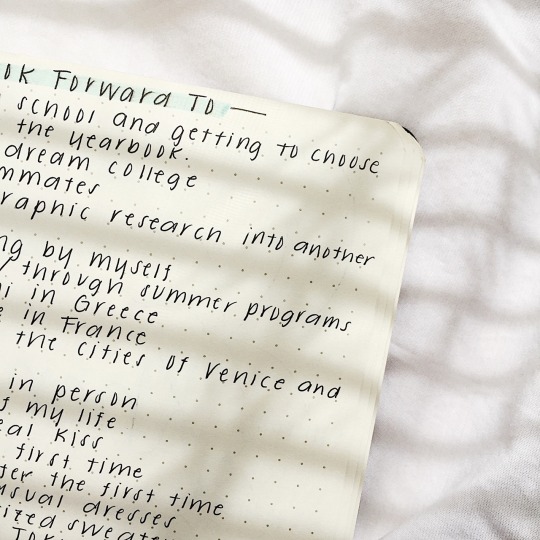 OK FORWARD TO —
school and getting to choose
the yearbook.
dream college
mmates
raphic research into another
ng by myself
through summer programs
i in Greece
e in France
the cities of Venice and
in person
f my life
eal kiss
first time
ter the first time
usual dresses
ized sweate